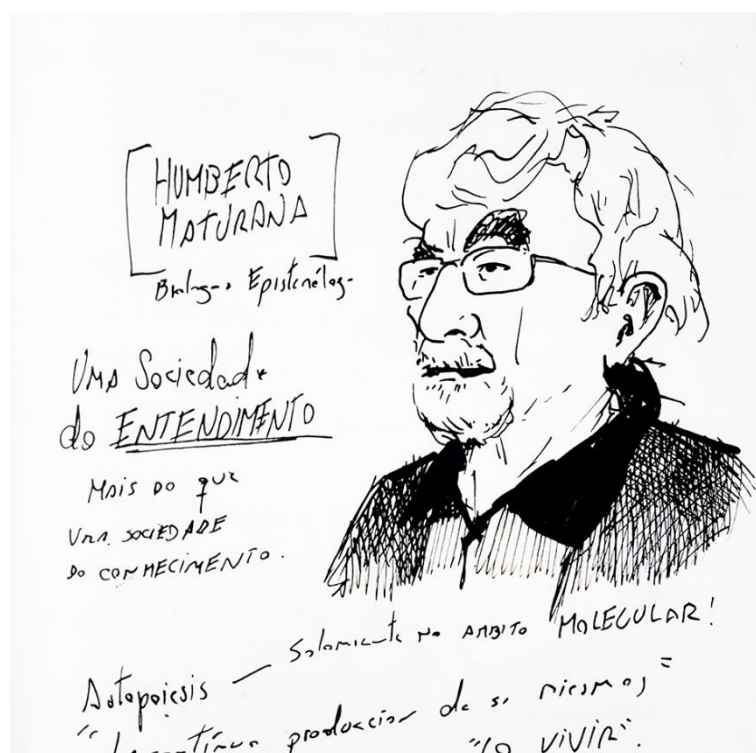 HUMBERTO
MATURANA
Epistemólog
UMA Sociedade
do ENTENDIMENTO
MAIS DO QUE
UMA SOCIEDADE
DO CONHECIMENTO.
Autopoiesis — Solamente no AMBITO MOLECULAR!
"La continua produccion de si mismos"
"LO VIVIR".